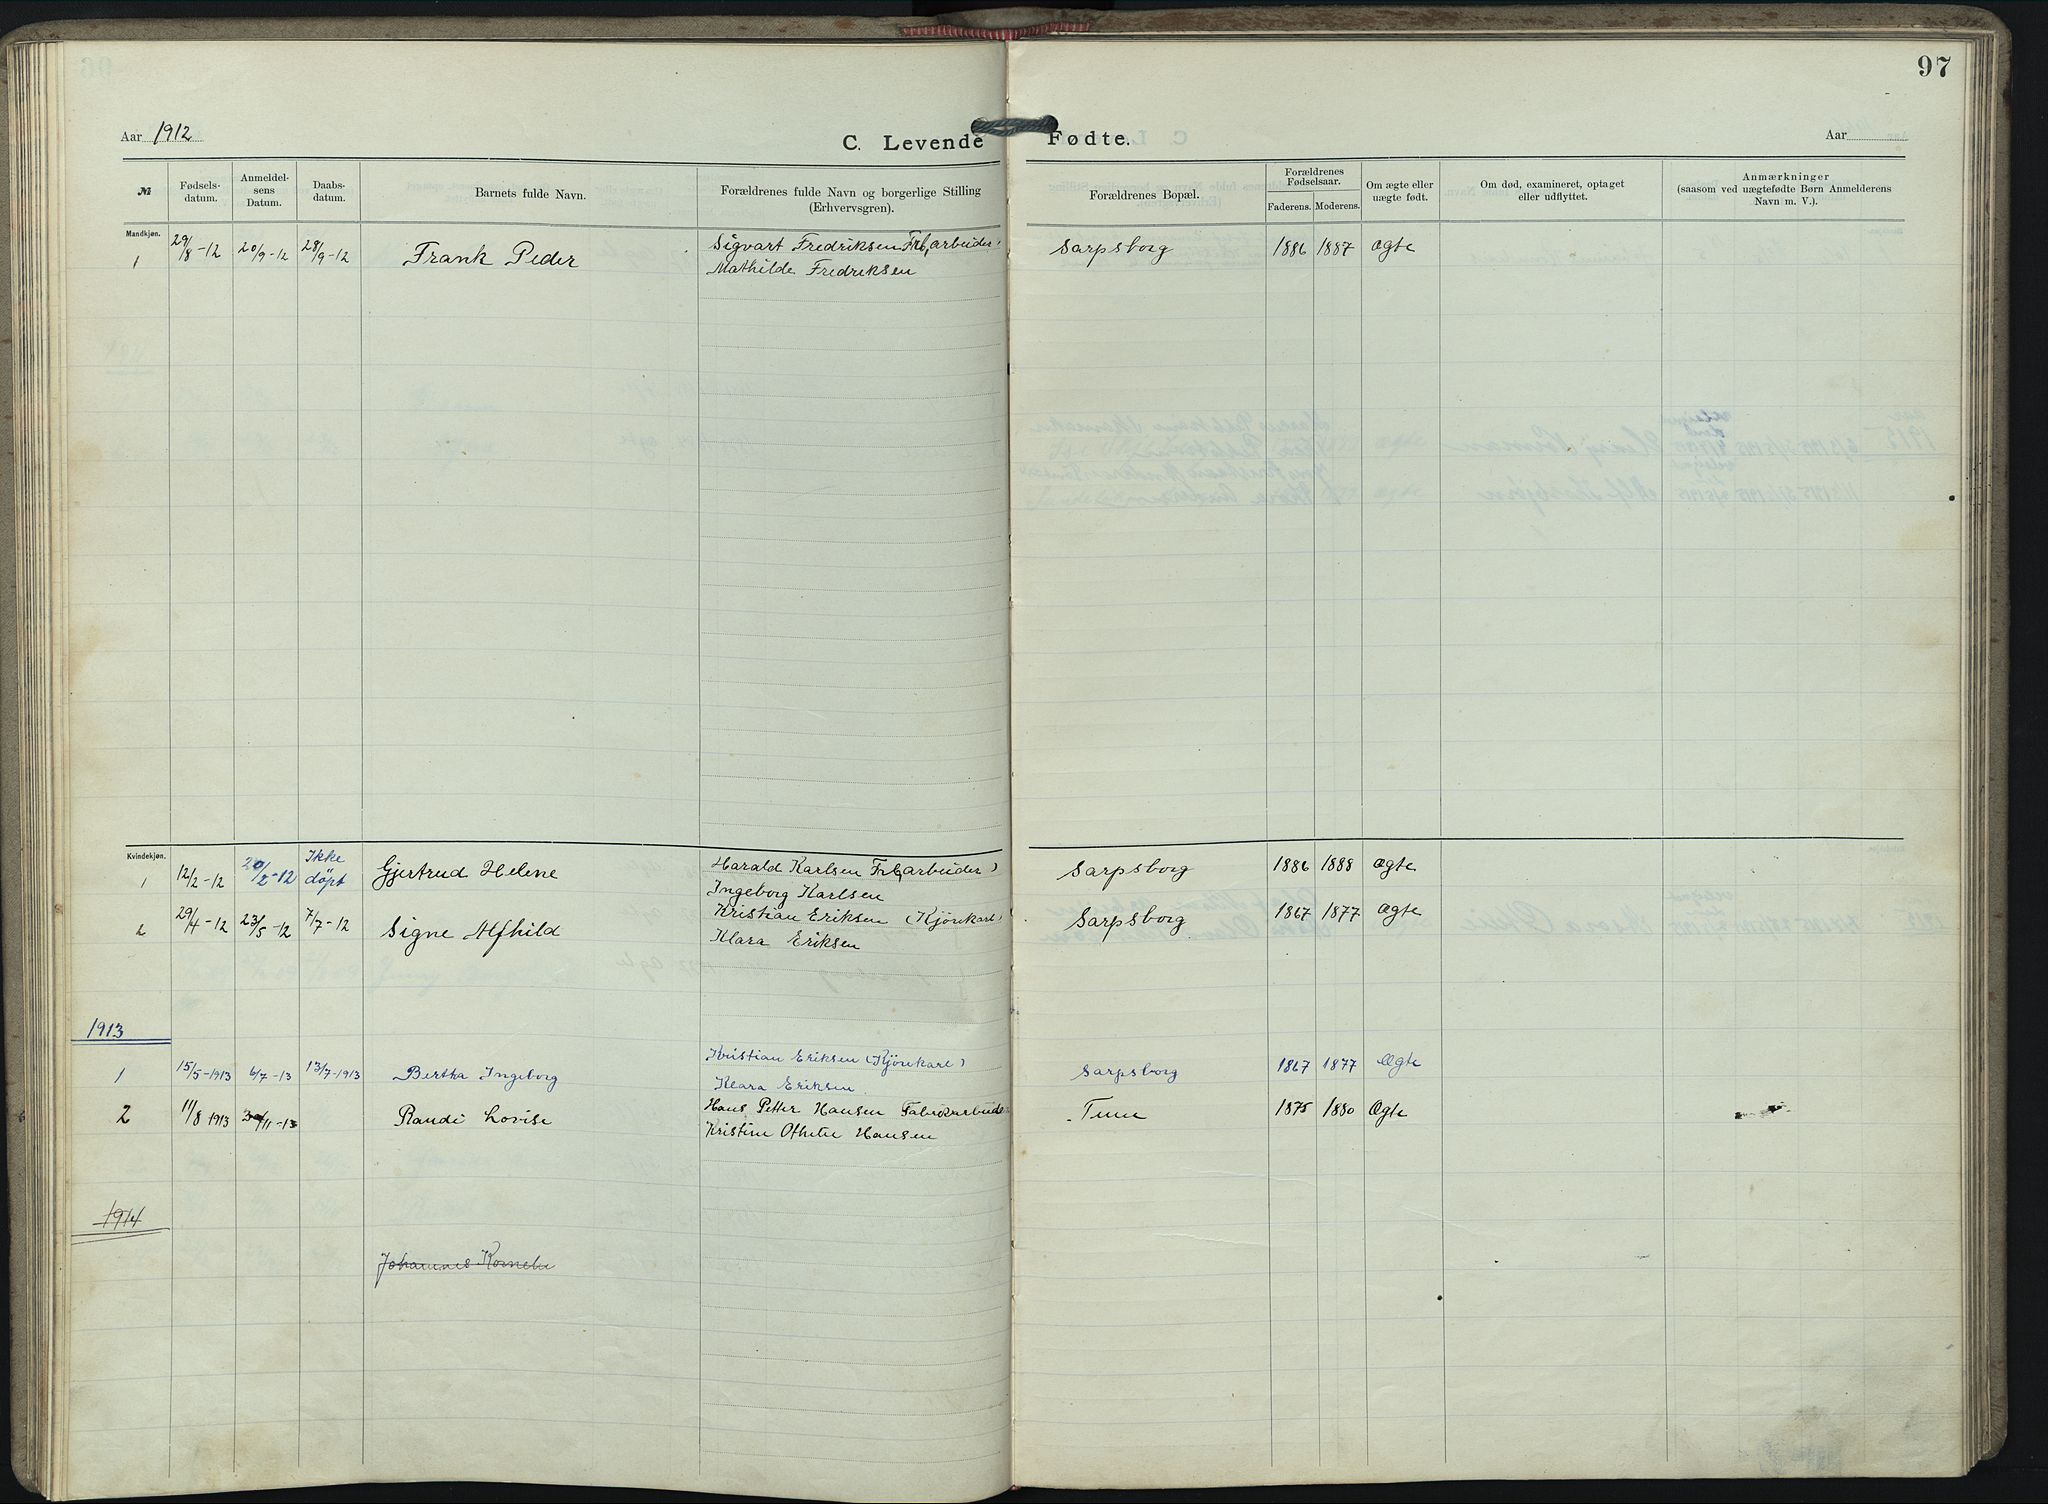 97
Aar 1912
C. Levende Fødte.
Aar
№
Fødsels-datum.
Anmeldel-sens Datum.
Daabs-datum.
Barnets fulde Navn.
Forældrenes fulde Navn og borgerlige Stilling (Erhvervsgren).
Forældrenes Bopæl.
Forældrenes Fødselsaar.
Faderens. Moderens.
Om ægte eller uægte født.
Om død, examineret, optaget eller udflyttet.
Anmærkninger (saasom ved uægtefødte Børn Anmelderens Navn m. V.).
Mandkjøn.
1 29/8-12 20/9-12 28/9-12 Frank Peder Sigvart Fredriksen Frb,arbeider Sarpsborg 1886 1887 Ægte
Mathilde Fredriksen
Kvindekjøn.
1 12/2-12 20/2-12 Ikke döpt Gjertrud Helene Harald Karlsen Frb,arbeider) Sarpsborg 1886 1888 Ægte
Ingeborg Karlsen
2 29/4-12 23/5-12 7/7-12 Signe Alfhild Kristian Eriksen (Kjörekarl) Sarpsborg 1867 1877 Ægte
Klara Eriksen
1913
1 15/5-1913 6/7-13 13/7-1913 Bertha Ingeborg Kristian Eriksen (Kjörekarl) Sarpsborg 1867 1877 Ægte
Klara Eriksen
2 11/8 1913 /11-13 Randi Lovise Hans Petter Hansen Fabrikarbeide Tune 1875 1880 Ægte
Kristine Othetie Hansen
1914
Johannes